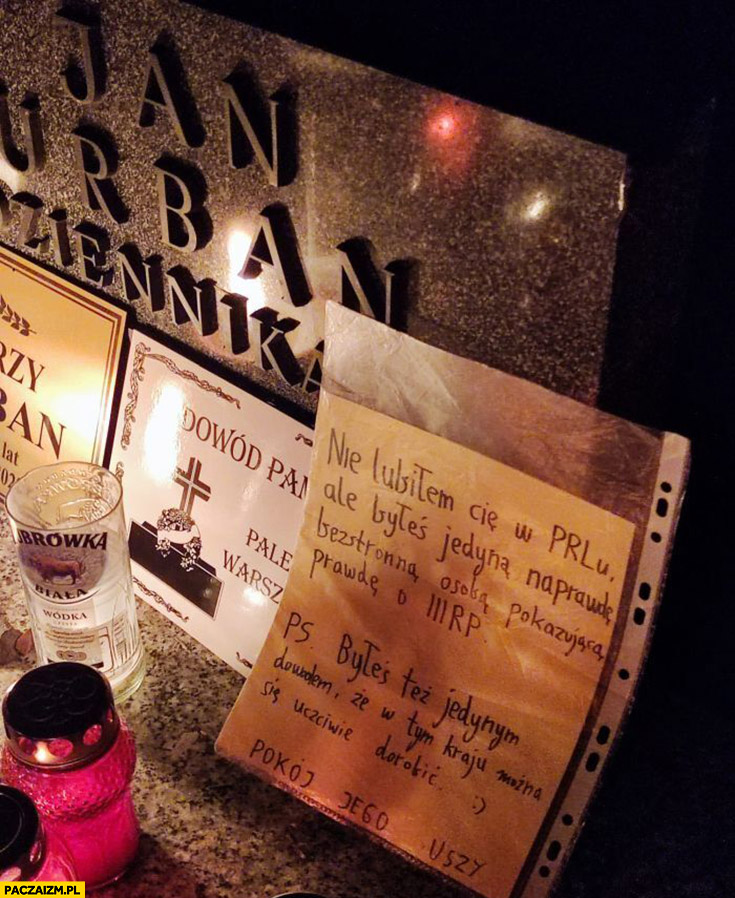 JAN
URBAN
DZIENNIKA
RZY
BAN
lat
DOWÓD PAM
PALE
WARSZ
UBRÓWKA
BIAŁA
WÓDKA
Nie lubiłem cię w PRLu,
ale byłeś jedyną naprawdę
bezstronną osobą pokazującą
prawdę o IIIRP.
PS. Byłeś też jedynym
dowodem, że w tym kraju można
się uczciwie dorobić. :)
POKÓJ JEGO USZY
PACZAIZM.PL